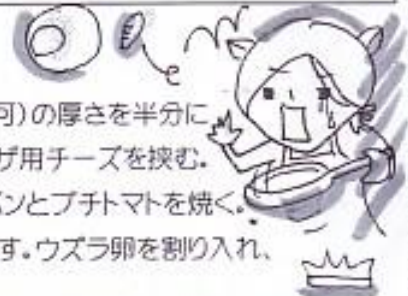 e
可)の厚さを半分に
ザ用チーズを挟む。
パンとプチトマトを焼く。
す。ウズラ卵を割り入れ、